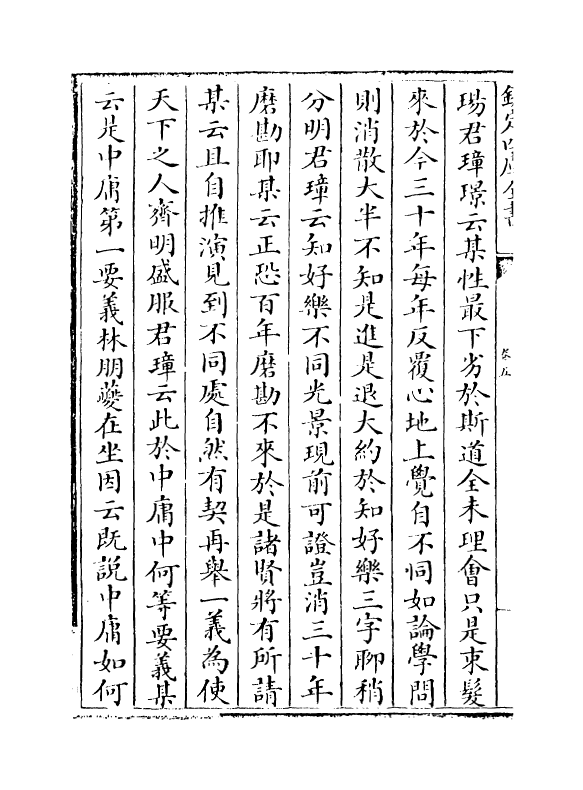 欽定四庫全書
卷五
瑒君璋璟云某性最下劣於斯道全未理會只是束髮
來於今三十年每年反覆心地上覺自不同如論學問
則消散大半不知是進是退大約於知好樂三字聊稍
分明君璋云知好樂不同光景現前可證豈消三十年
磨勘耶某云正恐百年磨勘不來於是諸賢將有所請
某云且自推演見到不同處自然有契再舉一義為使
天下之人齊明盛服君璋云此於中庸中何等要義某
云是中庸第一要義林朋夔在坐因云既説中庸如何